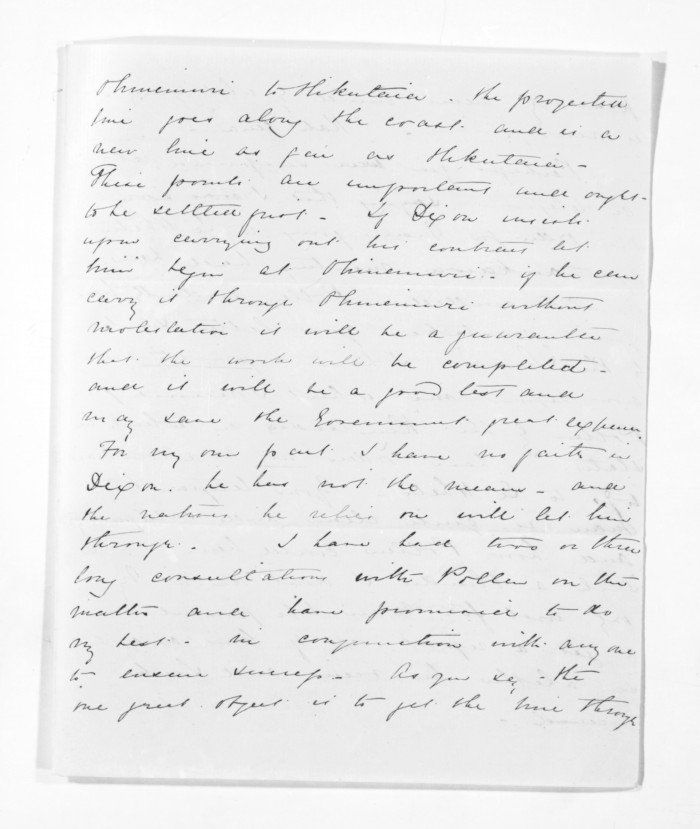 Ohinemuri to Hikutaia. the projected
line goes along the coast and is a
new line as far as Hikutaia -
These points are important and ought
to be settled first - If Dixon insists
upon carrying out his contract let
him begin at Ohinemuri - if he can
carry it through Ohinemuri without
molestation it will be a guarantee
that the work will be completed -
and it will be a good test and
may save the Government great expense
For my own part I have no faith in
Dixon. he has not the means - and
the natives he relies on will let him
through - I have had two or three
long consultations with Pollen on the
matter and have promised to do
my best - in conjunction with any one
to ensure success - As you say - the
one great object is to get the line through